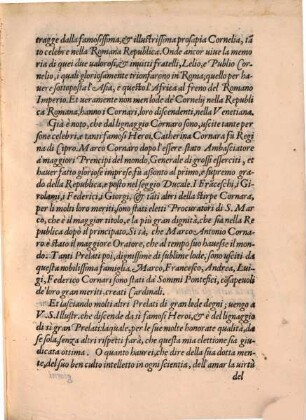 tragge dalla famosissima, & illustrissima prosapia Cornelia, tã
to celebre nella Romana Republica. Onde ancor uiue la memo
ria di quei due valorosi, & inuitti fratelli, Lelio, e Publio Cor-
nelio, i quali gloriosamente trionfarono in Roma; quello per ha-
uere sottoposta l'Asia, e questo l'Africa al freno del Romano
Imperio. Et veramente non men lode de' Cornelij nella Republi
ca Romana, hanno i Cornari, loro discendenti, nella Venetiana.
Già è noto, che dal lignaggio Cornaro sono, uscite tante per
sone celebri, e tanti famosi Heroi, Catherina Cornara fù Regi
na di Cipro. Marco Cornaro dopò l'essere stato Ambasciatore
a' maggiori Prencipi del mondo, Generale di grossi esserciti, et
hauer fatto gloriose imprese, fù assonto al primo, e supremo gra-
do della Republica, e posto nel seggio Ducale. I Fraceschi, i Gi-
rolami, i Federici, i Giorgi, & tanti altri della stirpe Cornara,
per li molti loro meriti, sono stati eletti Procuratori di S. Mar-
co, che è al maggior titolo, e la più gran dignità, che sia nella Re
publica dopò il principato. Si rà, che Marco Antonio Corna-
ro è stato il maggiore Oratore, che al tempo suo hauesse il mon-
do. Tanti Prelati poi, dignissime di sublime lode, sono usciti da
questa nobilissima famiglia, Marco, Francesco, Andrea, Lui-
gi, Federico Cornari sono stati da' Sommi Pontefici, cosapeuoli
de' loro gran meriti, creati Cardinali.
Et lasciando molti altri Prelati di gran lode degni; uengo a
V. S. Illustr. che discende da tì famosi Heroi, & è del lignaggio
di sì gran Prelati: la quale, per le sue molte honorate qualità, da
se sola, senza altri rispetti farà, che questa mia elettione sia giu-
dicata ottima. O quanto haurei, che dire della sua dotta men-
te, del suo ben culto intelletto in ogni scientia, dell'amar la virtù
del